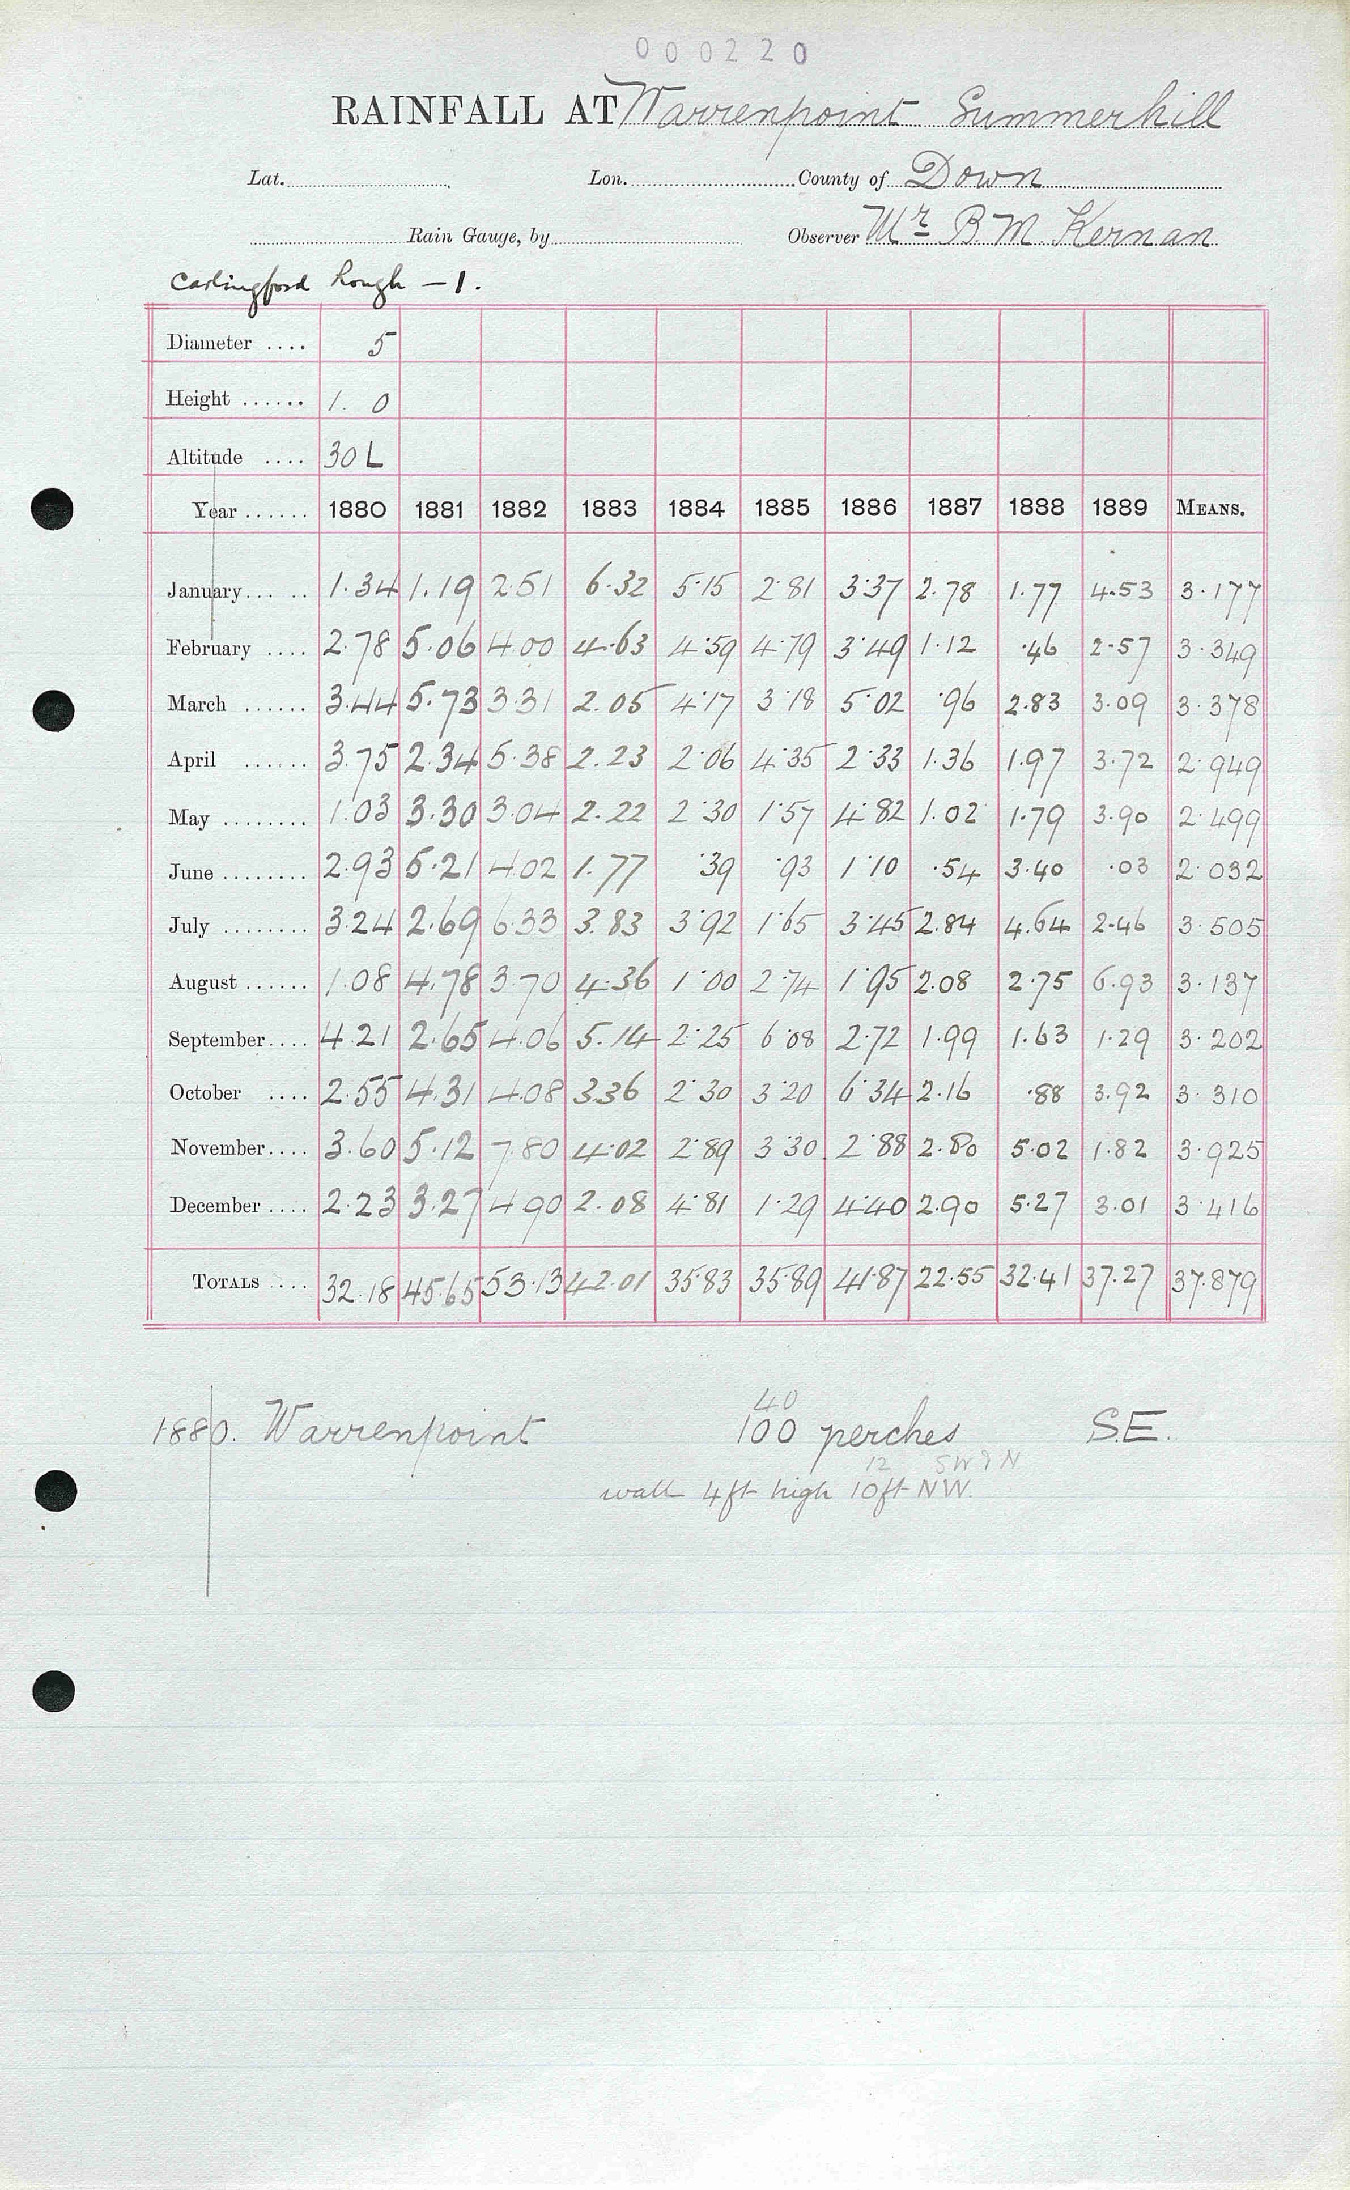 000220
RAINFALL AT Warrenpoint Summerhill
Lat. Lon. County of Down
Rain Gauge, by Observer Mr B M Kernan
Carlingford Lough — 1.
Diameter .... 5
Height ...... 1. 0
Altitude .... 30 L
Year ...... 1880 1881 1882 1883 1884 1885 1886 1887 1888 1889 MEANS.
January... .. 1.34 1.19 2.51 6.32 5.15 2.81 3.37 2.78 1.77 4.53 3.177
February .... 2.78 5.06 4.00 4.63 4.59 4.79 3.49 1.12 .46 2.57 3.349
March ...... 3.44 5.73 3.31 2.05 4.17 3.18 5.02 .96 2.83 3.09 3.378
April ...... 3.75 2.34 5.38 2.23 2.06 4.35 2.33 1.36 1.97 3.72 2.949
May ........ 1.03 3.30 3.04 2.22 2.30 1.57 4.82 1.02 1.79 3.90 2.499
June ........ 2.93 5.21 4.02 1.77 .39 .93 1.10 .54 3.40 .03 2.032
July ........ 3.24 2.69 6.33 3.83 3.92 1.65 3.45 2.84 4.64 2.46 3.505
August ...... 1.08 4.78 3.70 4.36 1.00 2.74 1.95 2.08 2.75 6.93 3.137
September.... 4.21 2.65 4.06 5.14 2.25 6.08 2.72 1.99 1.63 1.29 3.202
October .... 2.55 4.31 4.08 3.36 2.30 3.20 6.34 2.16 .88 3.92 3.310
November.... 3.60 5.12 7.80 4.02 2.89 3.30 2.88 2.80 5.02 1.82 3.925
December .... 2.23 3.27 4.90 2.08 4.81 1.29 4.40 2.90 5.27 3.01 3.416
TOTALS .... 32.18 45.65 53.13 42.01 35.83 35.89 41.87 22.55 32.41 37.27 37.879
40
1880. Warrenpoint 100 perches S.E.
12 SW & N
wall 4ft high 10ft NW.